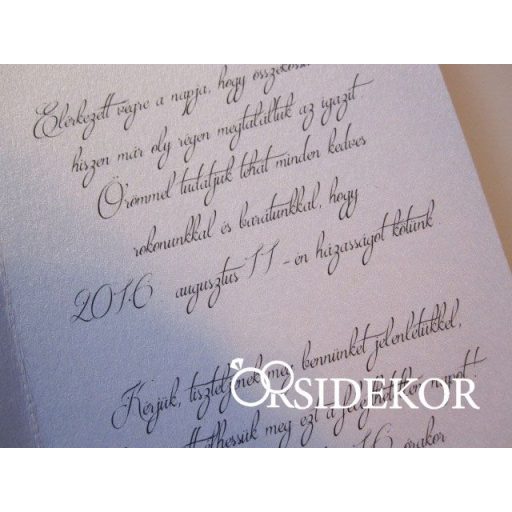 Elérkezett végre a napja, hogy
hiszen már oly régen megtaláltuk az igazit
Örömmel tudatjuk tehát minden kedves
rokonunkkal és barátunkkal, hogy
2016 augusztus 11 - én házasságot kötünk.
Kérjük, tiszteljenek meg bennünket jelenlétükkel,
ORSIDEKOR
meg ezt a
órakor